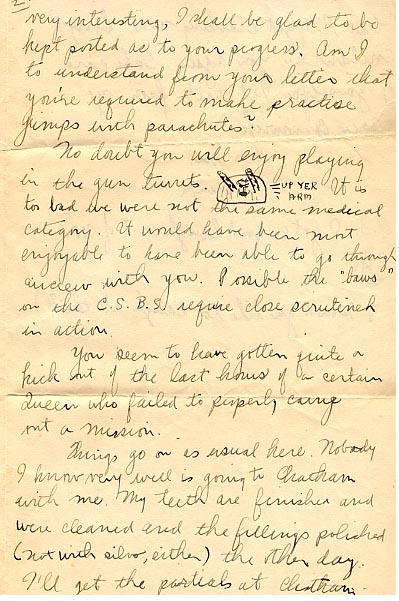 2
very interesting, I shall be glad to be
kept posted as to your progress. Am I
to understand from your letter that
you're required to make practise
jumps with parachutes?
No doubt you will enjoy playing
in the gun turrets. UP YER ARM It is
too bad we were not the same medical
category. It would have been most
enjoyable to have been able to go through
aircrew with you. Possible the "baws"
on the C.S.B.S. require close scrutined
in action.
You seem to have gotten quite a
kick out of the last hours of a certain
Queen who failed to properly carry
out a mission.
Things go on as usual here. Nobody
I know very well is going to Chatham
with me. My teeth are finished and
were cleaned and the fillings polished
(not with silvo, either) the other day.
I'll get the partials at Chatham.